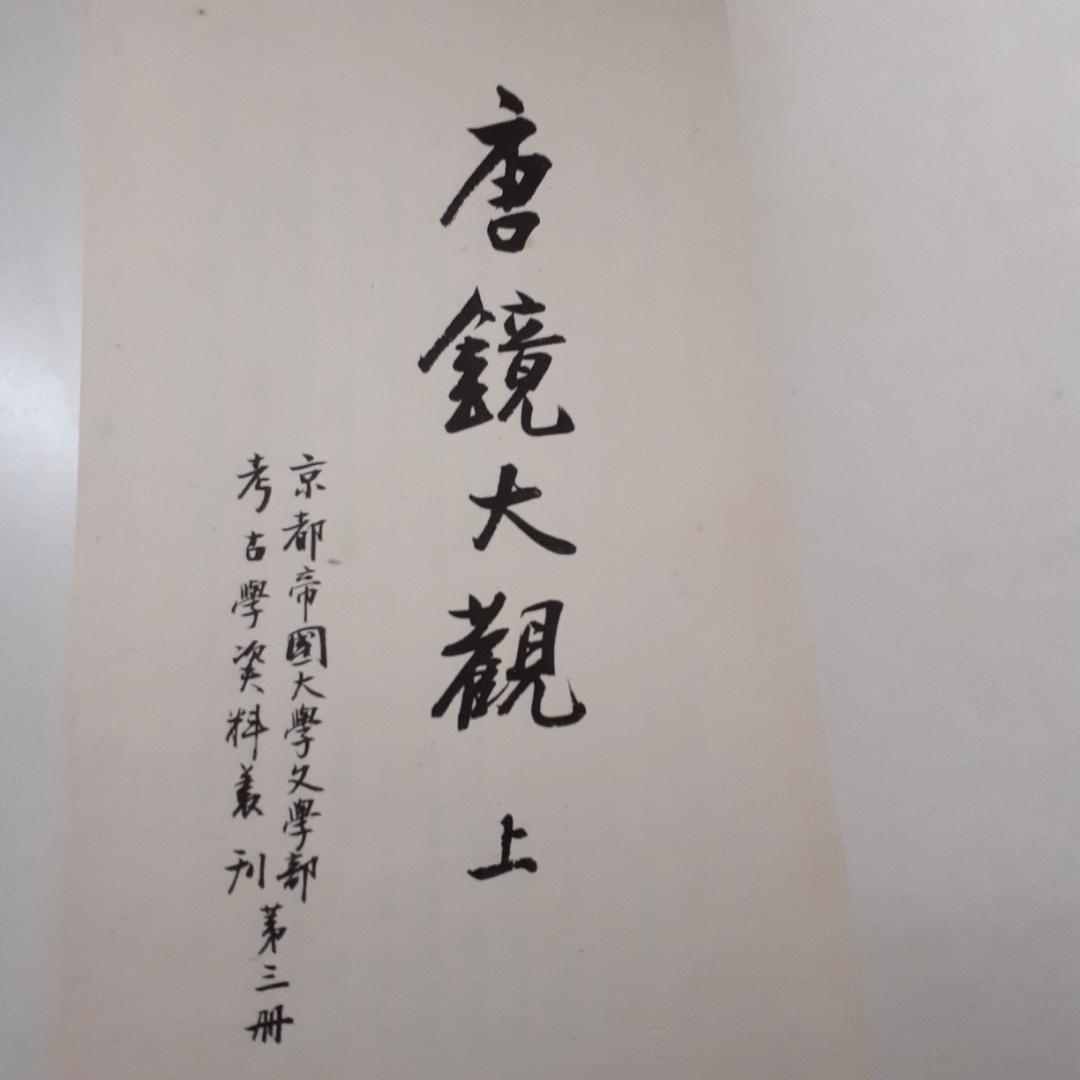 唐鏡大觀 上
京都帝國大學文學部
考古學資料叢刊
第三册